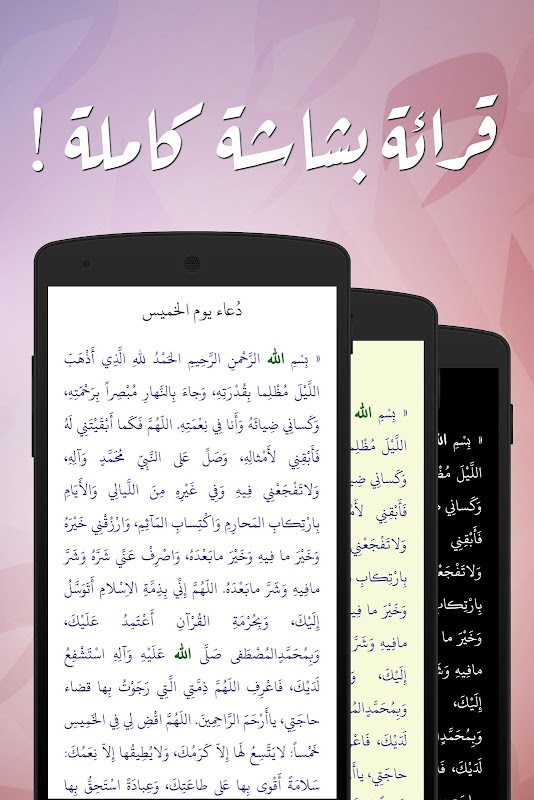 قرائة بشاشة كاملة !
دُعاء يوم الخميس
« بِسْمِ اللهِ الرَّحْمنِ الرَّحِيمِ الحَمْدُ للهِ الَّذِي أَذْهَبَ
اللَّيْلَ مُظْلِما بِقُدْرَتِهِ، وَجاءَ بِالنَّهارِ مُبْصِراً بِرَحْمَتِهِ،
وَكَسانِي ضِيائَهُ وَأَنا فِي نِعْمَتِهِ. اللهُمَّ فَكَما أَبْقَيْتَنِي لَهُ
فَأَبْقِنِي لأَمْثالِهِ، وَصَلِّ عَلى النَّبِيّ مُحَمَّدٍ وَآلِهِ،
وَلاتَفْجَعْنِي فِيهِ وَفِي غَيْرِهِ مِنَ اللَّيالِي وَالأَيَّامِ
بِارْتِكابِ المَحارِمِ وَاكْتِسابِ المَآثِمِ، وَارْزُقْنِي خَيْرَهُ
وَخَيْرَ ما فِيهِ وَخَيْرَ مابَعْدَهُ، وَاصْرِفْ عَنِّي شَرَّهُ وَشَرَّ
مافِيهِ وَشَرَّ مابَعْدَهُ. اللهُمَّ إِنِّي بِذِمَّةِ الاِسْلامِ أَتَوَسَّلُ
إِلَيْكَ، وَبِحُرْمَةِ القُرْآنِ أَعْتَمِدُ عَلَيْكَ،
وَبِمُحَمَّدٍالمُصْطَفى صَلّى اللهُ عَلَيْهِ وَآلِهِ اسْتَشْفِعُ
لَدَيْكَ، فَاعْرِفِ اللهُمَّ ذِمَّتِي الَّتِي رَجَوْتُ بِها قضاء
حاجَتِي، ياأَرْحَمَ الرَّاحِمِينَ. اللهُمَّ اقْضِ لِي فِي الخَمِيسِ
خَمْساً: لايَتَّسِعُ لَها إِلاّ كَرَمُكَ، وَلايُطِيقُها إِلاّ نِعَمُكَ:
سَلامَةً أَقْوى بِها عَلى طاعَتِكَ، وَعِبادَةً اسْتَحِقُّ بِها
« بِسْمِ اللهِ
اللَّيْلَ مُظْلِما
وَكَسانِي ضِيا
فَأَبْقِنِي لأَمْ
وَلاتَفْجَعْنِي
بِارْتِكابِ
وَخَيْرَ ما فِي
مافِيهِ وَشَرَّ
إِلَيْكَ،
وَبِمُحَمَّدٍالمُ
لَدَيْكَ، فَاعْ
حاجَتِي، ياأَ
« بِسْمِ الله
اللَّيْلَ مُظْ
وَكَسانِي
فَأَبْقِنِي
وَلاتَفْجَعْ
بِارْتِكابِ
وَخَيْرَ ما
مافِيهِ وَشَ
إِلَيْكَ،
وَبِمُحَمَّدٍ
لَدَيْكَ،